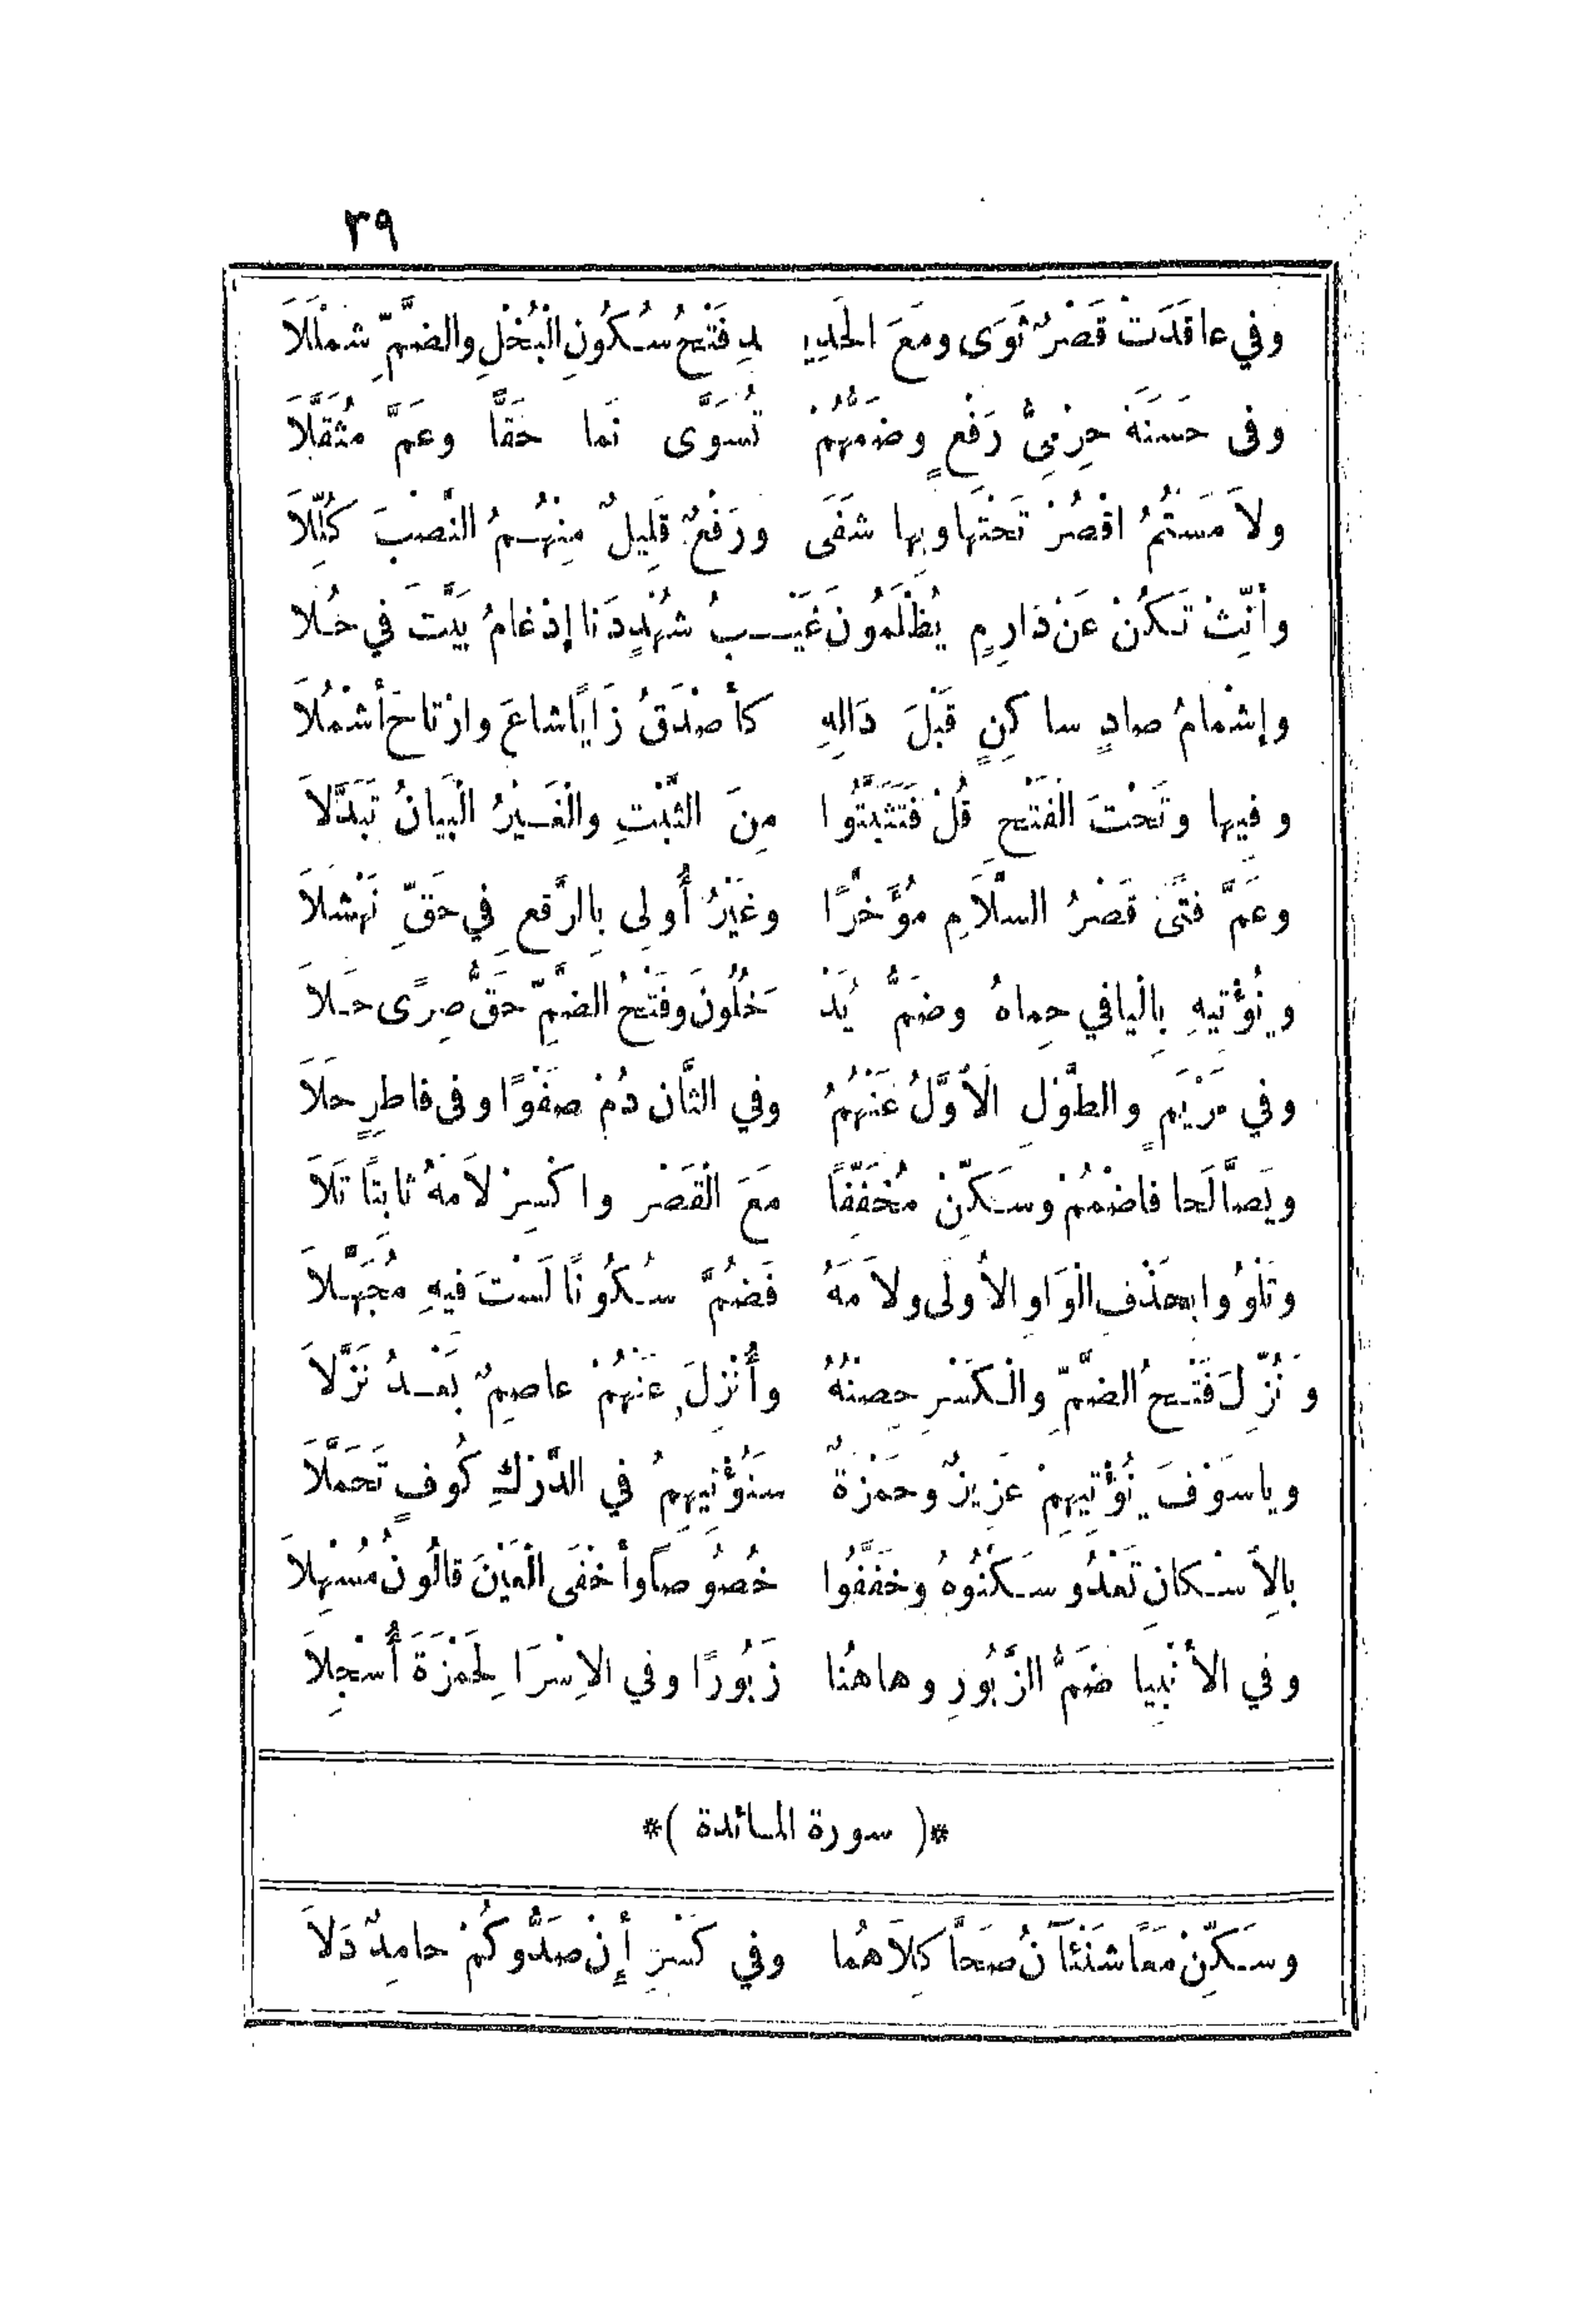 ٣٩
وفي عاقَدَتْ قَصْرٌ ثَوَى ومَعَ الحَدِيـ ـدِ فَتْحُ سُكُونِ الْبُخْلِ والضمِّ شَمْلَلاَ
وفى حَسَنَهْ حِرْمِىُّ رَفْعٍ وضَمُّهُمْ تُسَوَّى نَما حَقًّا وعَمَّ مُثَقَّلاَ
ولاَمَسْتُمُ اقْصُرْ تَحْتَها وبِها شَفَى ورَفْعُ قَلِيلٌ مِنْهُمُ النَّصْبَ كُلِّلاَ
وأَنِّثْ تَكُنْ عَنْ دَارِمٍ يُظْلَمُونَ غَيْـبُ شُهْدٍ دَنا إِدْغامُ بَيَّتَ في حُلا
وإشْمامُ صادٍ ساكِنٍ قَبْلَ دَالِهِ كأصْدَقُ زَايًا شاعَ وارْتاحَ أشْمُلاَ
وفيها وتَحْتَ الفَتْحِ قُلْ فَتَثَبَّتُوا مِنَ الثَّبْتِ والْغَيْرُ الْبَيانُ تَبَدَّلاَ
وعَمَّ فتًى قَصْرُ السَّلاَمِ مُؤَخَّرًا وغَيْرُ أُولِى بِالرَّفعِ في حَقِّ نَهْشَلاَ
ونُؤْتِيهِ بِالْيا في حِماهُ وضَمُّ يَدْ خُلُونَ وفَتْحُ الضَّمِّ حَقُّ صِرًى حَلاَ
وفي مَرْيَمٍ والطَّوْلِ الأَوَّلُ عَنْهُمُ وفي الثَّان دُمْ صَفْوًا وفى فاطِرٍ حَلاَ
ويَصَّالَحا فاضْمُمْ وسَكِّنْ مُخَفِّفًا مَعَ الْقَصْرِ واكْسِرْ لاَمَهُ ثابِتًا تَلاَ
وتَلْوُوا بِحَذْفِ الْوَاوِ الأُولَى ولاَمَهُ فَضُمَّ سُكُونًا لَسْتَ فيهِ مُجَهَّلاَ
ونُزِّلَ فَتْحُ الضَّمِّ والْكَسْرِ حِصْنُهُ وأُنْزِلَ عَنْهُمْ عاصِمٌ بَعْدُ نَزَّلاَ
وياسَوْفَ نُؤْتِيهِمْ عَزِيزٌ وحَمْزَةٌ سَنُؤْتِيهِمُ في الدَّرْكِ كُوفٍ تَحَمَّلاَ
بِالاِسْكان تَعْدُو سَكِّنُوهُ وخَفِّفُوا خُصُوصاً وأَخْفَى الْعَيْنَ قالُونُ مُسْهِلاَ
وفي الأَنْبِيا ضَمُّ الزَّبُورِ وهاهُنا زَبُورًا وفي الاِسْرَا لِحَمْزَةَ أُسْجِلاَ
*( سورة المائدة )*
وسَكِّنْ مَعًا شَنَئآنُ صَحَّا كِلاَهُما وفي كَسْرِ أَِنْ صَدُّوكُمْ حامِدٌ دَلاَ